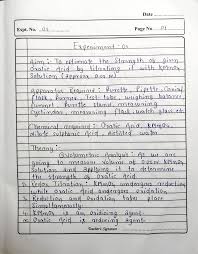 Date
Expt. No. 01 Page No. 01
Experiment - 01
Aim :- To estimate the strength of given
Oxalic Acid by titrating it with KMnO4
Solution (approx
Apparatus Required : Burette, Pipette, Conical
flask, Burner, Test tube, weighing
Funnel, Burette stand, measuring
Cylinder, measuring flask, watch glass etc
Chemical required : Oxalic Acid, KMnO4
dilute sulphuric Acid, distilled water
Theory :-
Volumetric Analysis : As we are
going to measure volume of KMnO4
Solution and Applying it to determine
the strength of Oxalic Acid.
Redox Titration : KMnO4 undergoes reduction
while Oxalic Acid undergoes oxidation.
Reduction and Oxidation take place
Simultaneously.
KMnO4 is an oxidizing agent
Oxalic Acid is reducing agent
Teacher's Signature